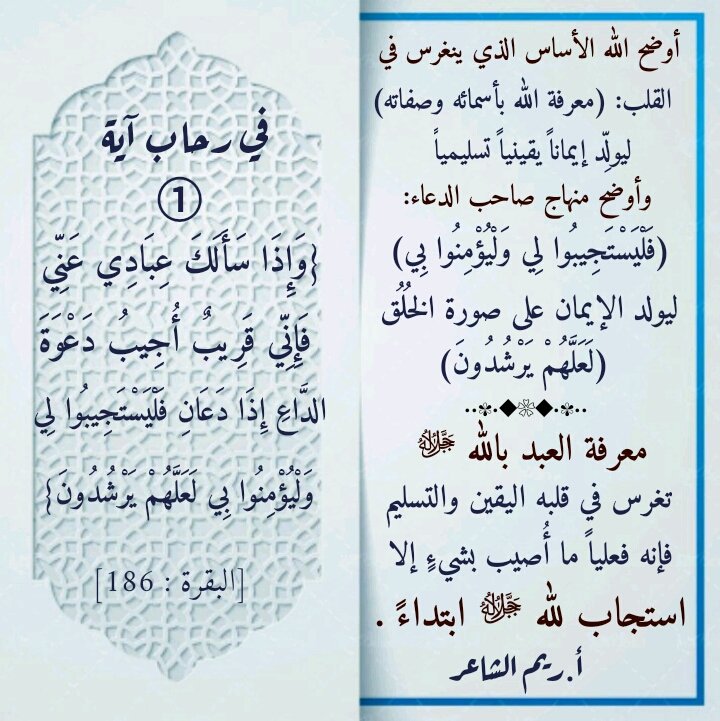 في رحاب آية
①
{وَإِذَا سَأَلَكَ عِبَادِي عَنِّي
فَإِنِّي قَرِيبٌ أُجِيبُ دَعْوَةَ
الدَّاعِ إِذَا دَعَانِ فَلْيَسْتَجِيبُوا لِي
وَلْيُؤْمِنُوا بِي لَعَلَّهُمْ يَرْشُدُونَ}
[البقرة : 186]
أوضح الله الأساس الذي ينغرس في
القلب: (معرفة الله بأسمائه وصفاته)
ليولّد إيماناً يقينياً تسليمياً
وأوضح منهاج صاحب الدعاء:
(فَلْيَسْتَجِيبُوا لِي وَلْيُؤْمِنُوا بِي)
ليولد الإيمان على صورة الخُلُق
(لَعَلَّهُمْ يَرْشُدُونَ)
معرفة العبد بالله ﷻ
تغرس في قلبه اليقين والتسليم
فإنه فعلياً ما أُصيب بشيءٍ إلا
استجاب لله ﷻ ابتداءً .
أ.ريم الشاعر